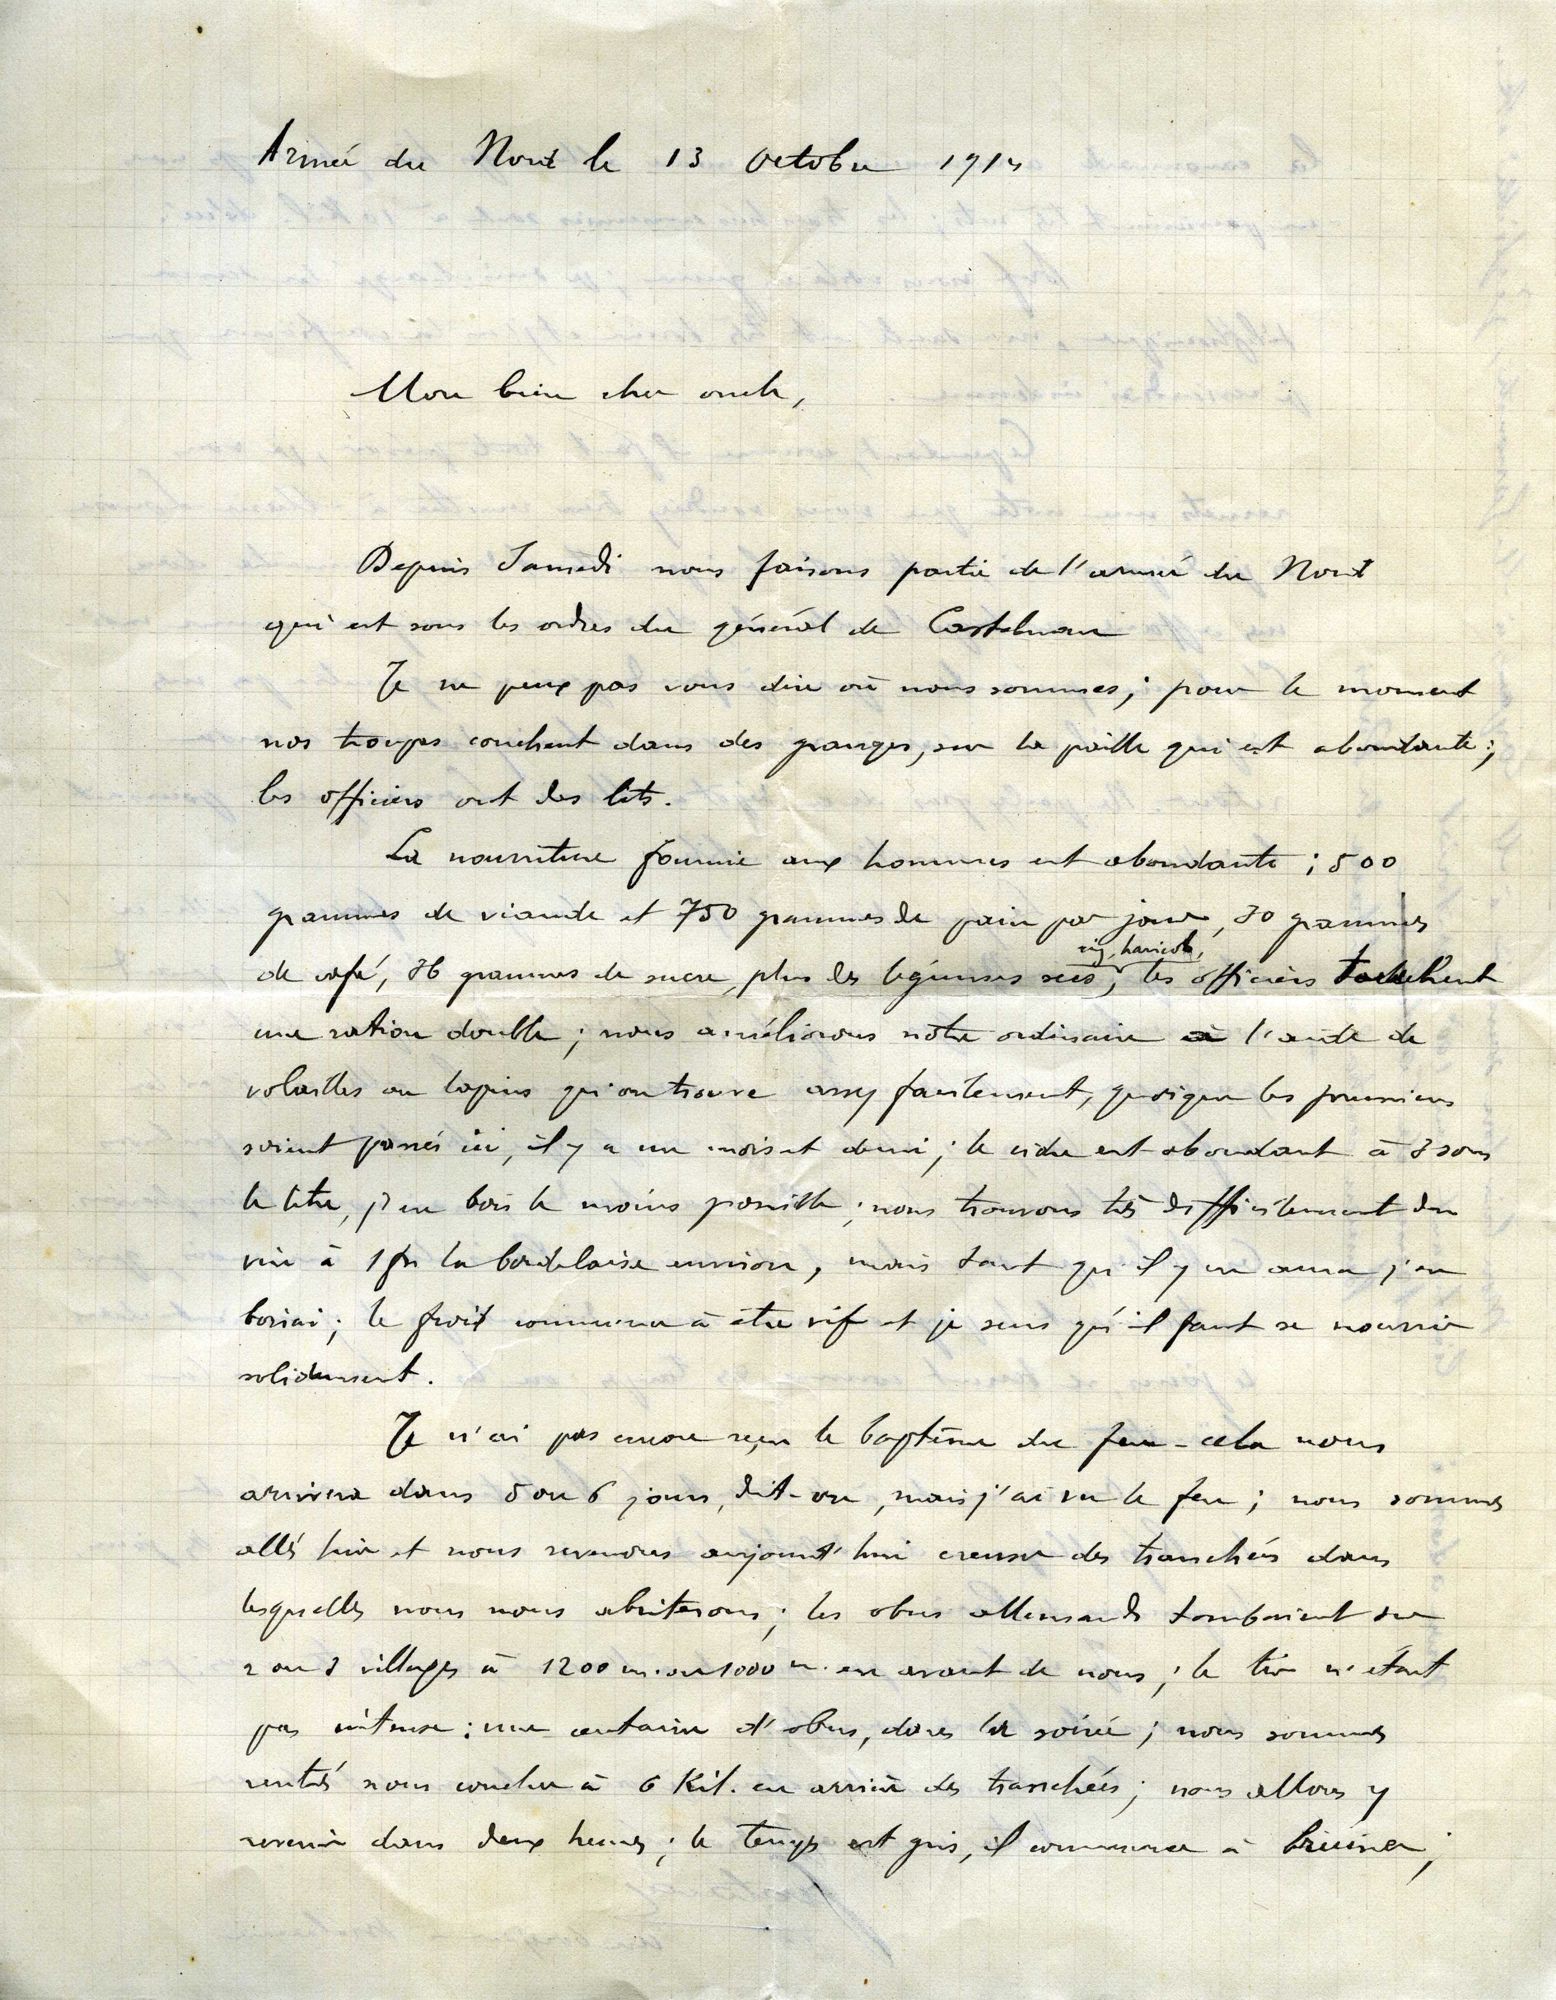 Armée du Nord le 13 Octobre 1914
Mon bien cher oncle,
Depuis Samedi nous faisons partie de l'armée du Nord
qui est sous les ordres du général de Castelnau
Je ne peux pas vous dire où nous sommes ; pour le moment
nos troupes couchent dans des granges, sur la paille qui est abondante ;
les officiers ont des lits.
La nourriture fournie aux hommes est abondante ; 500
grammes de viande et 750 grammes de pain par jour, 30 grammes
riz, haricots,
de café, 36 grammes de sucre, plus des légumes secs ; les officiers touchent
une ration double ; nous améliorons notre ordinaire à l'aide de
volailles ou lapins qu'on trouve assez facilement, quoique les prussiens
soient passés ici, il y a un mois et demi ; le cidre est abondant à 3 sous
le litre, j'en bois le moins possible ; nous trouvons très difficilement du
vin à 1 fr la bordelaise environ, mais tant qu'il y en aura j'en
boirai ; le froid commence à être vif et je sens qu'il faut se nourrir
solidement.
Je n'ai pas encore reçu le baptême du feu - cela nous
arrivera dans 5 ou 6 jours, dit-on, mais j'ai vu le feu ; nous sommes
allés hier et nous revenons aujourd'hui creuser des tranchées dans
lesquelles nous nous abriterons ; les obus allemands tombaient sur
2 ou 3 villages à 1200 m. ou 1000 m. en avant de nous ; le tir n'étant
pas intense : une centaine d'obus, dans la soirée ; nous sommes
rentrés nous coucher à 6 Kil. en arrière des tranchées ; nous allons y
revenir dans deux heures ; le temps est gris, il commence à bruiner ;